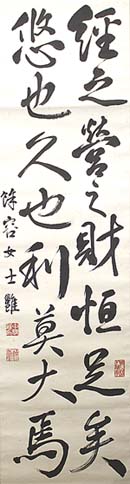 經之營之財恒足矣
悠也久也利莫大焉
餘容女士雅